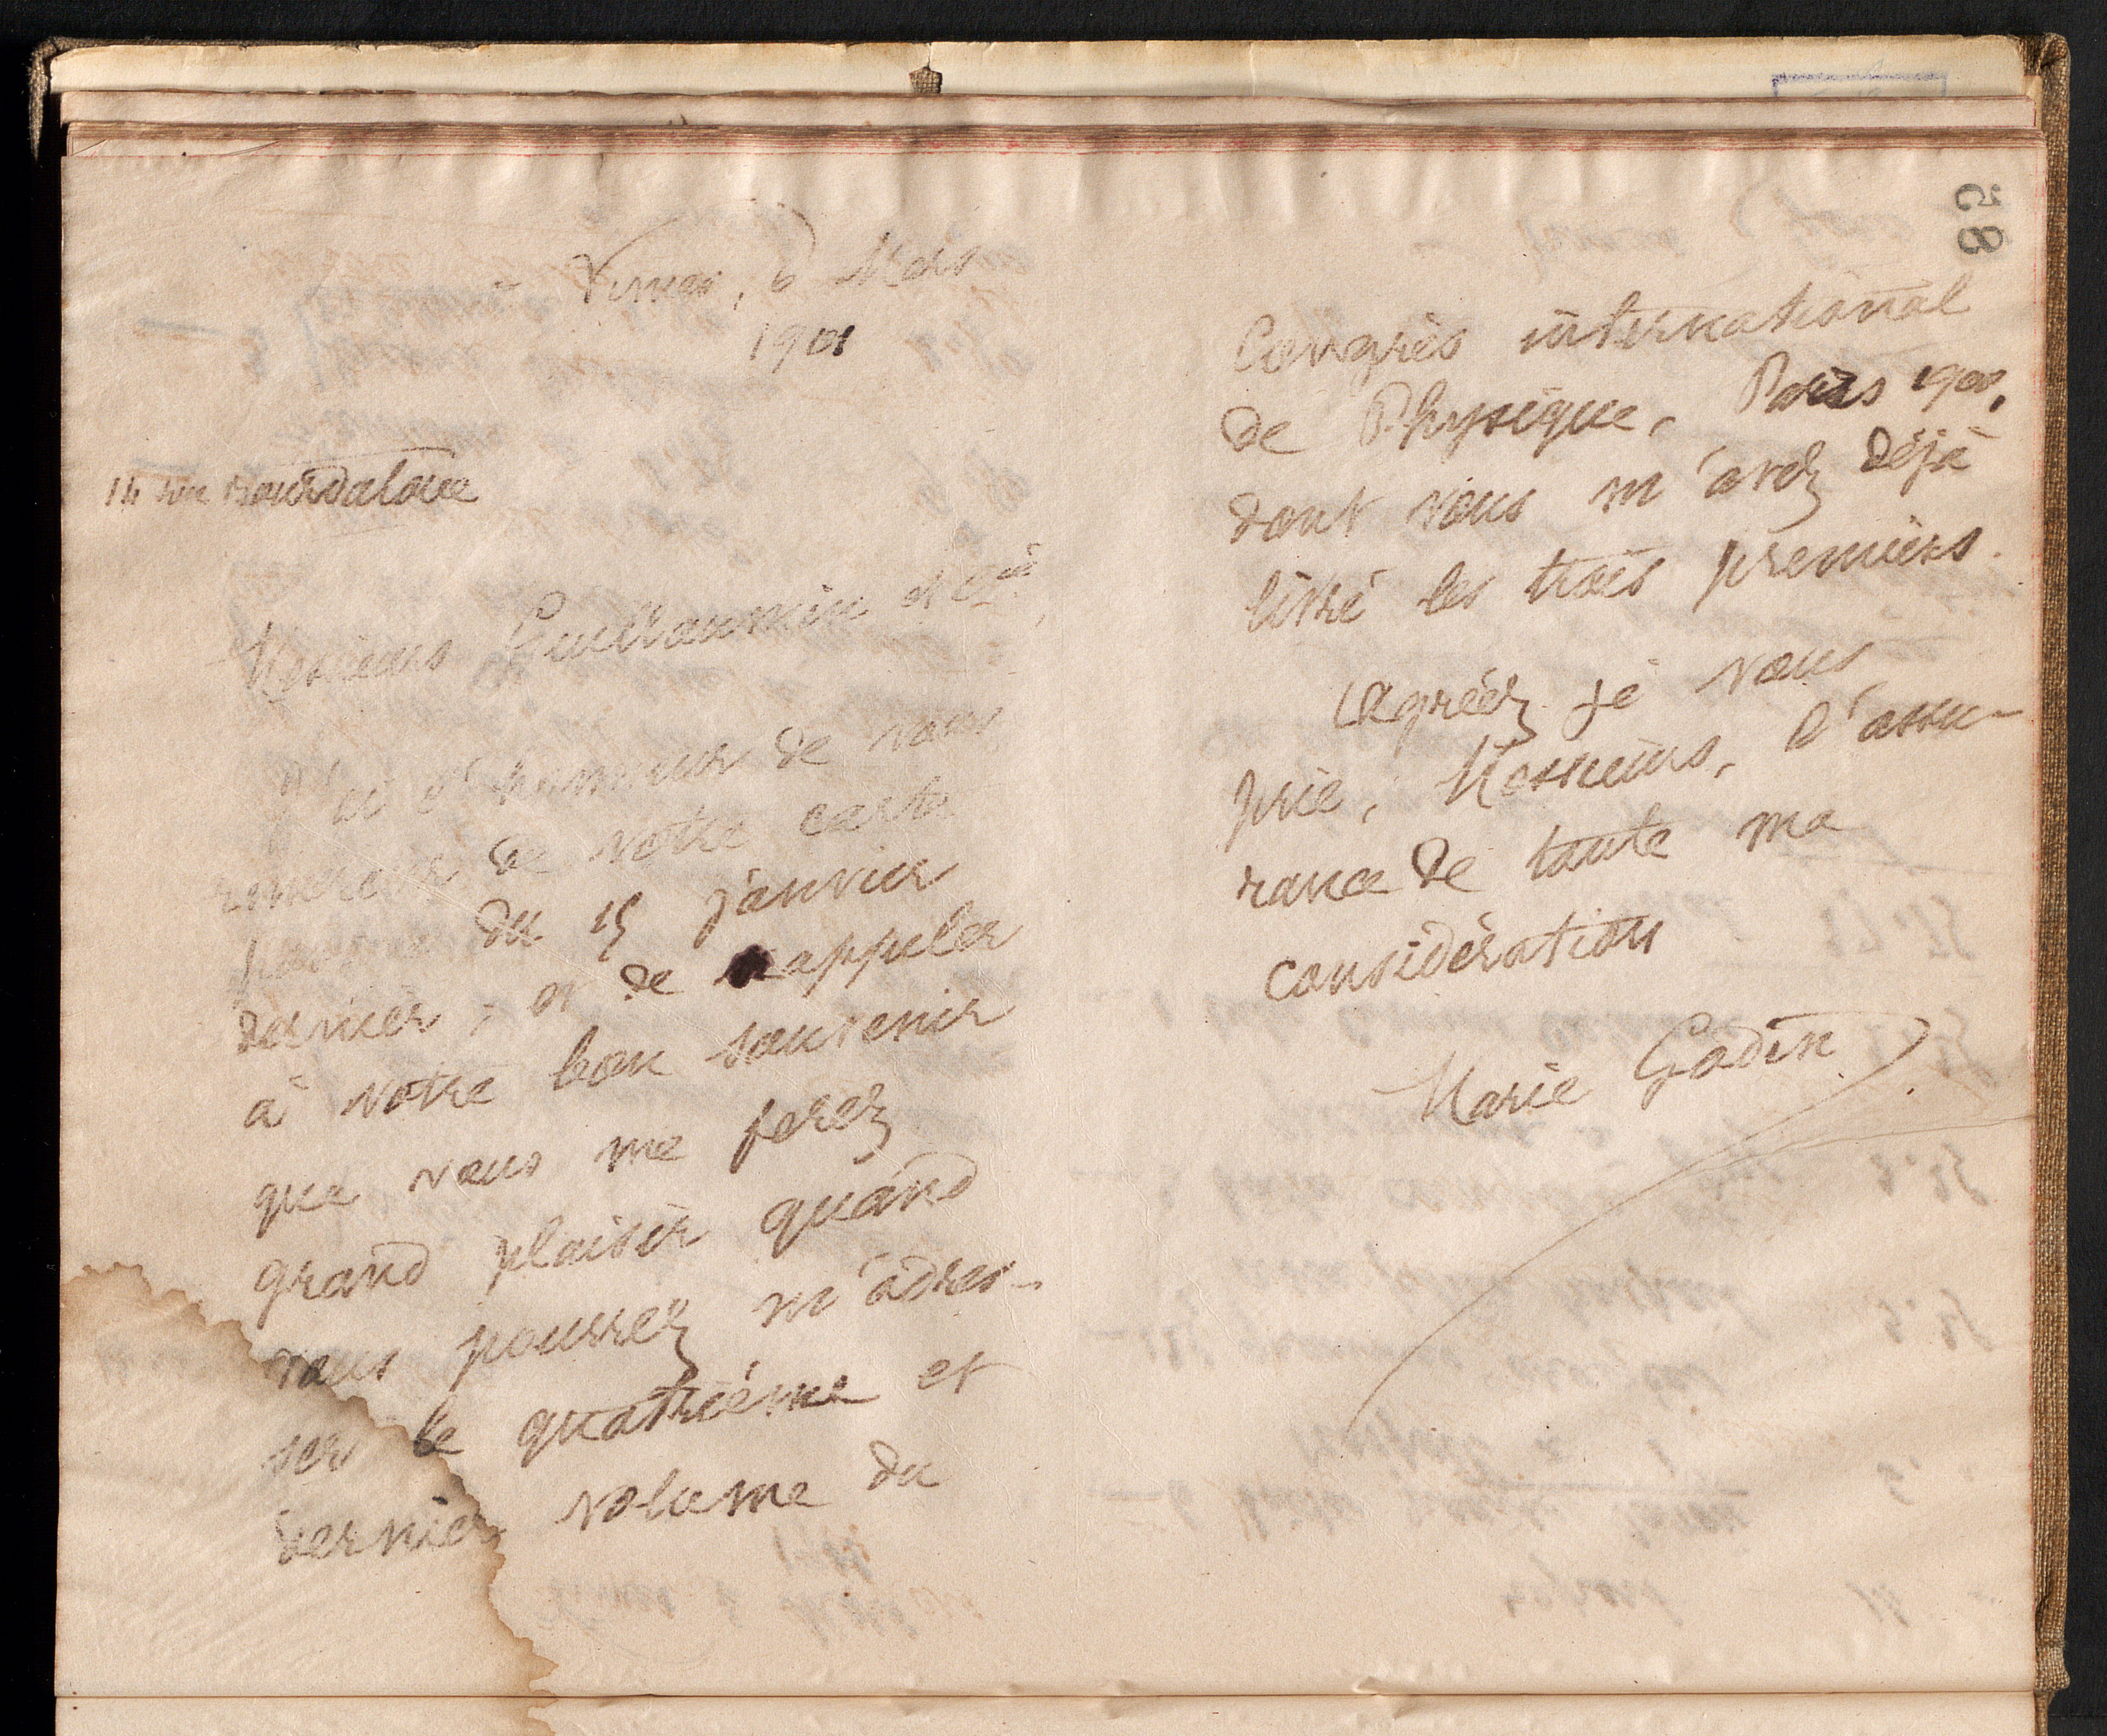 Nimes, 6 Mars
1901
14 rue Bourdaloue
Messieurs Guillaumin et Cie,
J'ai l'honneur de vous
remercier de votre carte
du 15 janvier
dernier, et de rappeler
à votre bon souvenir
que vous me ferez
grand plaisir quand
vous pourrez m'adres-
ser le quatrième et
dernier volume du
58
Congrès international
de Physique, Paris 1900,
dont vous m'avez déjà
livré les trois premiers.
Agréez je vous
prie, Messieurs, l'assu-
rance de toute ma
considération
Marie Godin